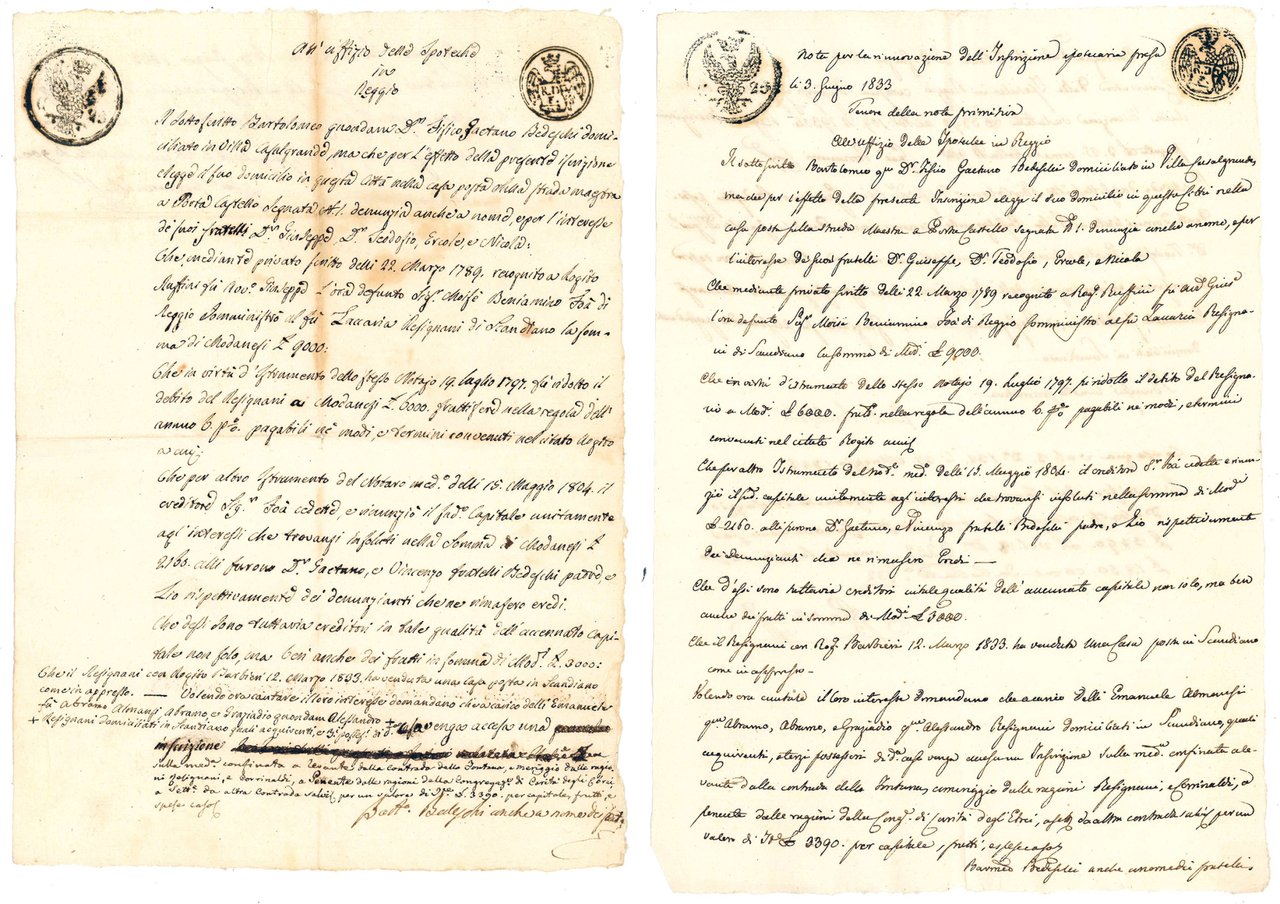 All' uffizio delle Ipoteche
in
Reggio
Il sottoscritto Bartolomeo quondam D.r Fisico Gaetano Bedeschi domi-
ciliato in Villa Casalgrande, ma che per l'effetto della presente iscrizione
elegge il suo domicilio in questa Città nella casa posta sulla strada maestra
a Porta Castello segnata N.1. denunzia anche a nome, e per l'interesse
de' suoi fratelli D.r Giuseppe, D.r Teodosio, Ercole, e Nicola:
Che mediante privato scritto delli 22. Marzo 1789. recognito a Rogito
Ruffini gli Giuseppe l'ora defunto Sig.r Moisè Beniamino Foà di
Reggio somministrò al fù Zaccaria Resignani di Scandiano la som-
ma di Modanesi £ 9000:
Che in virtù d'Istrumento dello stesso Notajo 19. Luglio 1797. fù ridotto il
debito del Resignani a Modanesi £ 6000. fruttifere nella regola dell'
anno 6. p.% pagabili ne' modi, e termini convenuti nel citato Rogito
Che per altro Istrumento del Notaro med.o delli 15. Maggio 1804. il
creditore Sig.r Foà cedette, e rinunziò il sud.o Capitale unitamente
agl'interessi che trovansi insoluti nella somma di Modanesi £
2160. alli furono D.r Gaetano, e Vincenzo fratelli Bedeschi padre, e
Zio rispettivamente dei denunzianti che ne rimasero eredi.
Che dessi sono tuttavia creditori in tale qualità dell'accennato Capi-
tale non solo, ma ben anche dei frutti in somma di Mod.i £ 3000:
Che il Resignani con Rogito Barbieri 12. Marzo 1833. ha venduta una Casa posta in Scandiano
come in appresso. — Volendo ora cautare il loro interesse domandano che a carico delli Emanuele
fù Abramo Almansi, Abramo, e Graziadio quondam Alessandro +
+ Resignani domiciliati in Scandiano quali acquirenti, e 3.i possess.i di d.a casa venga accesa una
inscrizione
sulla med.a confinata a levante dalla contrada della Fontana, a meriggio dalle ragio-
ni Resignani, e Corrinaldi, a Ponente dalle ragioni della Congregaz.e di Carità degli Ebrei
a Sett.e da altra contrada salvis per un valore di It.e £. 3390. per capitale, frutti, e
spese
Bart.o Bedeschi anche a nome de' frat.
Nota per la rinnovazione dell'Inscrizione ipotecaria presa
li 3. Giugno 1833
Tenore della nota primitiva
All'uffizio delle Ipoteche in Reggio
Il sottoscritto Bartolomeo q.m D.r Fisico Gaetano Bedeschi domiciliato in Villa Casalgrande,
ma che per l'effetto della presente Inscrizione elegge il suo domicilio in questa Città nella
casa posta sulla strada Maestra a Porta Castello segnata N.1. denunzia anche a nome, e per
l'interesse de' suoi fratelli D.r Giuseppe, D.r Teodosio, Ercole, e Nicola
Che mediante privato scritto delli 22 Marzo 1789 recognito a Rog.o Ruffini
l'ora defunto Sig.r Moisè Beniamino Foà di Reggio somministrò al fù Zaccaria Resigna-
ni di Scandiano la somma di Mod.i £ 9000.
Che in virtù d'istrumento dello stesso Notajo 19. Luglio 1797. fu ridotto il debito del Resigna-
ni a Mod.i £ 6000. frutt.e nella regola dell'annuo 6. p.% pagabili ne' modi, e termini
convenuti nel citato Rogito
Che per altro Istrumento del Not.o med.o delli 15. Maggio 1804. il creditore S.r Foà cedette e rinun-
ziò il sud.o capitale unitamente agl'interessi che trovansi insoluti nella somma di Mod.i
£ 2160. alli furono D.r Gaetano, e Vincenzo fratelli Bedeschi padre, e Zio rispettivamente
dei denunzianti che ne rimasero Eredi —
Che d'essi sono tuttavia creditori in tale qualità dell'accennato capitale non solo, ma ben
anche dei frutti in somma di Mod.i £ 3000.
Che il Resignani con Rog.o Barbieri 12. Marzo 1833. ha venduta una Casa posta in Scandiano
come in appresso —
Volendo ora cautare il loro interesse domandano che a carico delli Emanuele Almansi
q.m Abramo, Abramo, e Graziadio q.m Alessandro Resignani domiciliati in Scandiano, quali
acquirenti, e terzi possessori di d.a casa venga accesa una Inscrizione sulla med.a confinata a le-
vante dalla contrada della Fontana, a meriggio dalle ragioni Resignani, e Corrinaldi, a
ponente dalle ragioni della Cong.e di Carità degli Ebrei, a sett.e da altra contrada salvis per un
valore di It.e £ 3390. per capitale, frutti, e spese
Bartmeo Bedeschi anche a nome dei fratelli